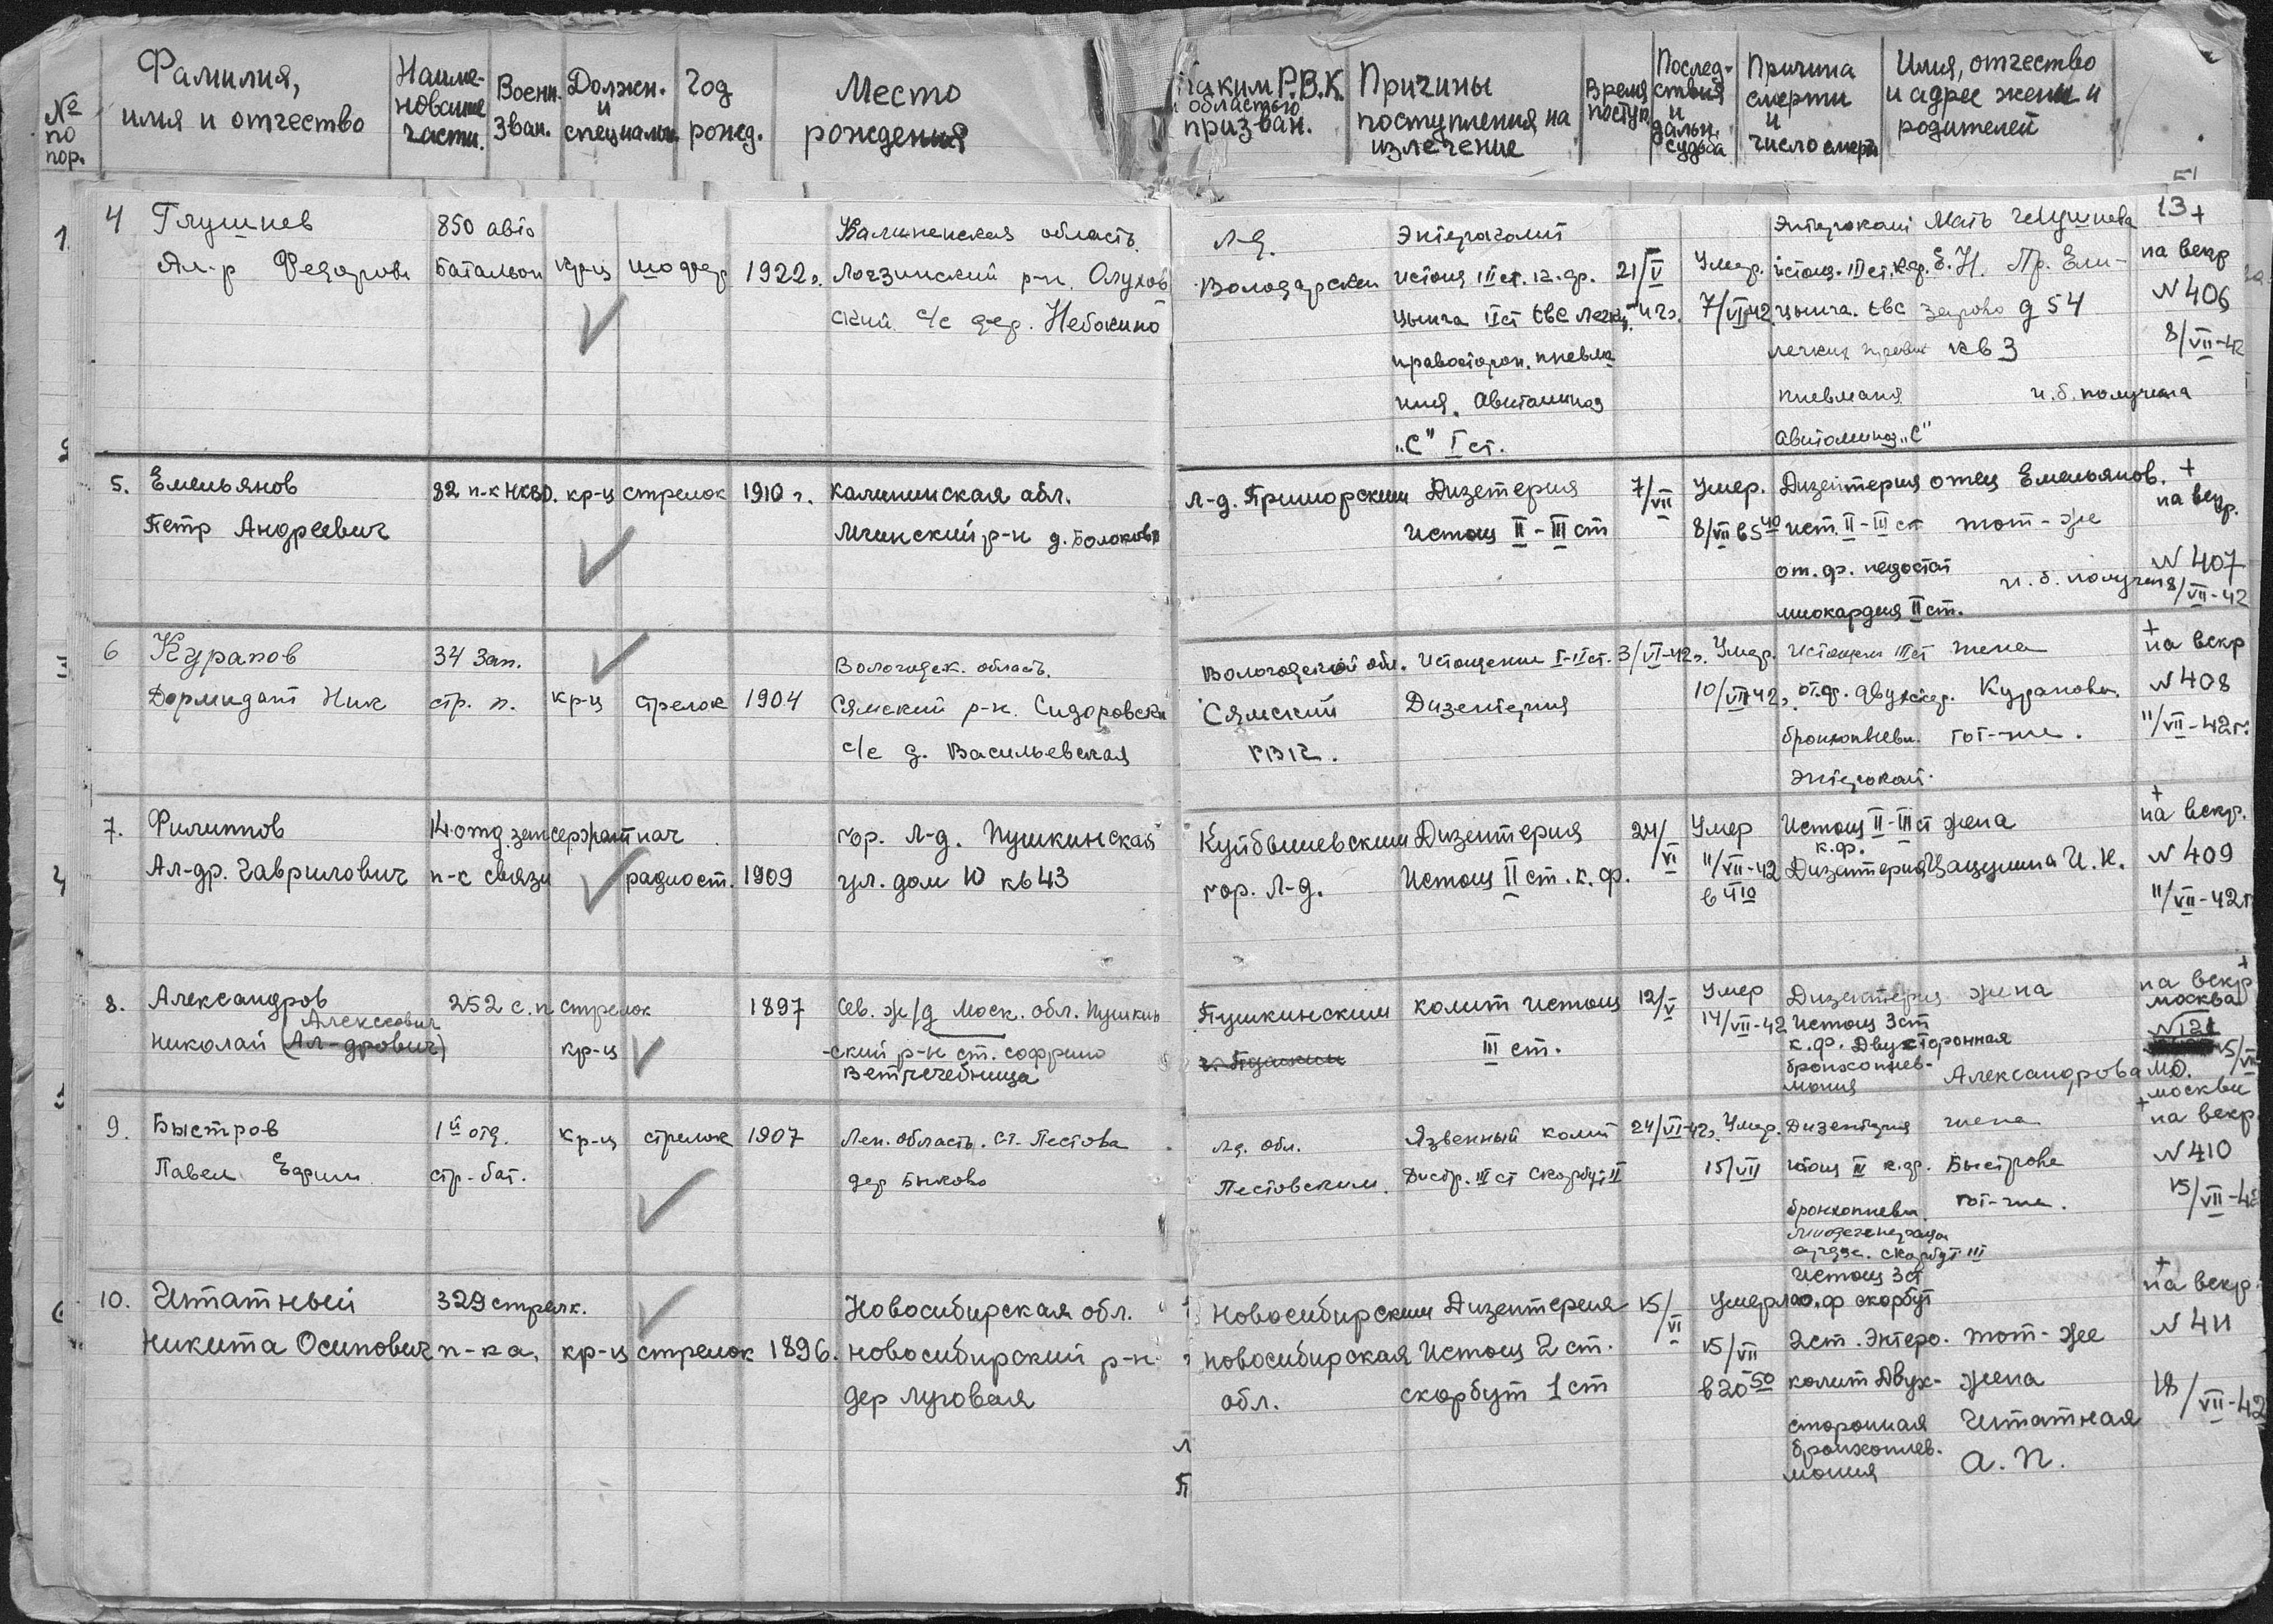 № по пор.
Фамилия, имя и отчество
Наименование части.
Воен. Зван.
Должн. и специальн.
Год рожд.
Место рождения
Каким Р.В.К. и областью призван.
Причины поступления на излечение
Время поступ.
Последствия и дальн. судьба
Причина смерти и число смерти
Имя, отчество и адрес жены и родителей
4 Глушнев 850 авто Калининская область. Л-д. Энтероколит Энтероколи Мать Глушнева 13 +
Ал-р Федоров батальон кр-ц шофер 1922 г. р-н. Володарским истощ III ст. к. ф. 21/V Умер. истощ. III ст. к.ф. Е. Н. Пр. на вскр
ский с/с дер. Небокино цынга II ст tbc легких 42 г. 7/VII 42. цынга. tbc д 54 N 406
правосторон. пневмо легких кв 3 8/VII-42
ния. Авитаминоз пневмания и. б. получена
„С" I ст. авитаминоз „С"
5. Емельянов 82 п-к НКВД. кр-ц стрелок 1910 г. Калининская обл. Л-д. Приморским Дизетерия 7/VII Умер. Дизентерия отец Емельянов. + на вскр.
Петр Андреевич р-н д. Истощ II-III ст 8/VII в 5 40 ист. II-III ст тот-же
от. ф. недостат N 407
миокардия II ст. и. б. получена 8/VII-42
6 Курапов 34 Зап. Вологодск. область. Вологодской обл. Истощение I-II ст. 3/VI-42 г. Умер. Истощен III ст жена + на вскр
Дормидонт Ник стр. п. кр-ц стрелок 1904 Сямский р-н. Сидоровски Сямский Дизентерия 10/VII 42 г. от.ф. двухстор. Курапова. N 408
с/с д. Васильевская РВК. бронхопневм. тот-же. 11/VII-42 г.
Энтерокол.
7. Филиппов 14 отд. зен сержант нач гор. Л-д. Пушкинская Куйбышевским Дизентерия 24/VI Умер Истощ II-III ст жена + на вскр.
Ал-др. Гаврилович п-к связи радиост. 1909 ул. дом 10 кв 43 гор. Л-д. Истощ II ст. к. ф. 11/VII-42 к.ф. Дизентерия И. К. N 409
в 4 10 11/VII-42 г
8. Александров 252 с. п стрелок 1897 Сев. ж/д Моск. обл. Пушкин Пушкинским колит истощ 12/V Умер Дизентерия жена на вскр +
Алексеевич москва
Николай (Ал-дрович) кр-ц -ский р-н ст. софрино III ст. 14/VII-42 Истощ 3 ст N 121
Ветлечебница к.ф. Двухсторонная 15/VII
бронхопневмония Александрова МО. москвы
9. Быстров 1й отд. кр-ц стрелок 1907 Лен. область. ст. Пестова Лд. обл. Язвенный колит 24/VI-42 г. Умер. Дизентерия жена + на вскр.
Павел Ефим. стр-бат. дер Быково Пестовским. Дистр. III ст Скорбут II 15/VII истощ III к.ф. Быстрова N 410
бронхопневм. тот-же. 15/VII-42
скорбут III
10. Штатный 329 стрелк. Новосибирская обл. Новосибирским Дизентерея 15/VI Умер Истощ 3 ст о.ф скорбут + на вскр.
Никита Осипович п-ка, кр-ц стрелок 1896. новосибирский р-н новосибирская Истощ 2 ст. 15/VII 2 ст. Энтеро- тот-же N 411
дер луговая обл. скорбут 1 ст в 20 50 колит Двух- жена 18/VII-42
сторонная Штатная
бронхопневмония А. П.